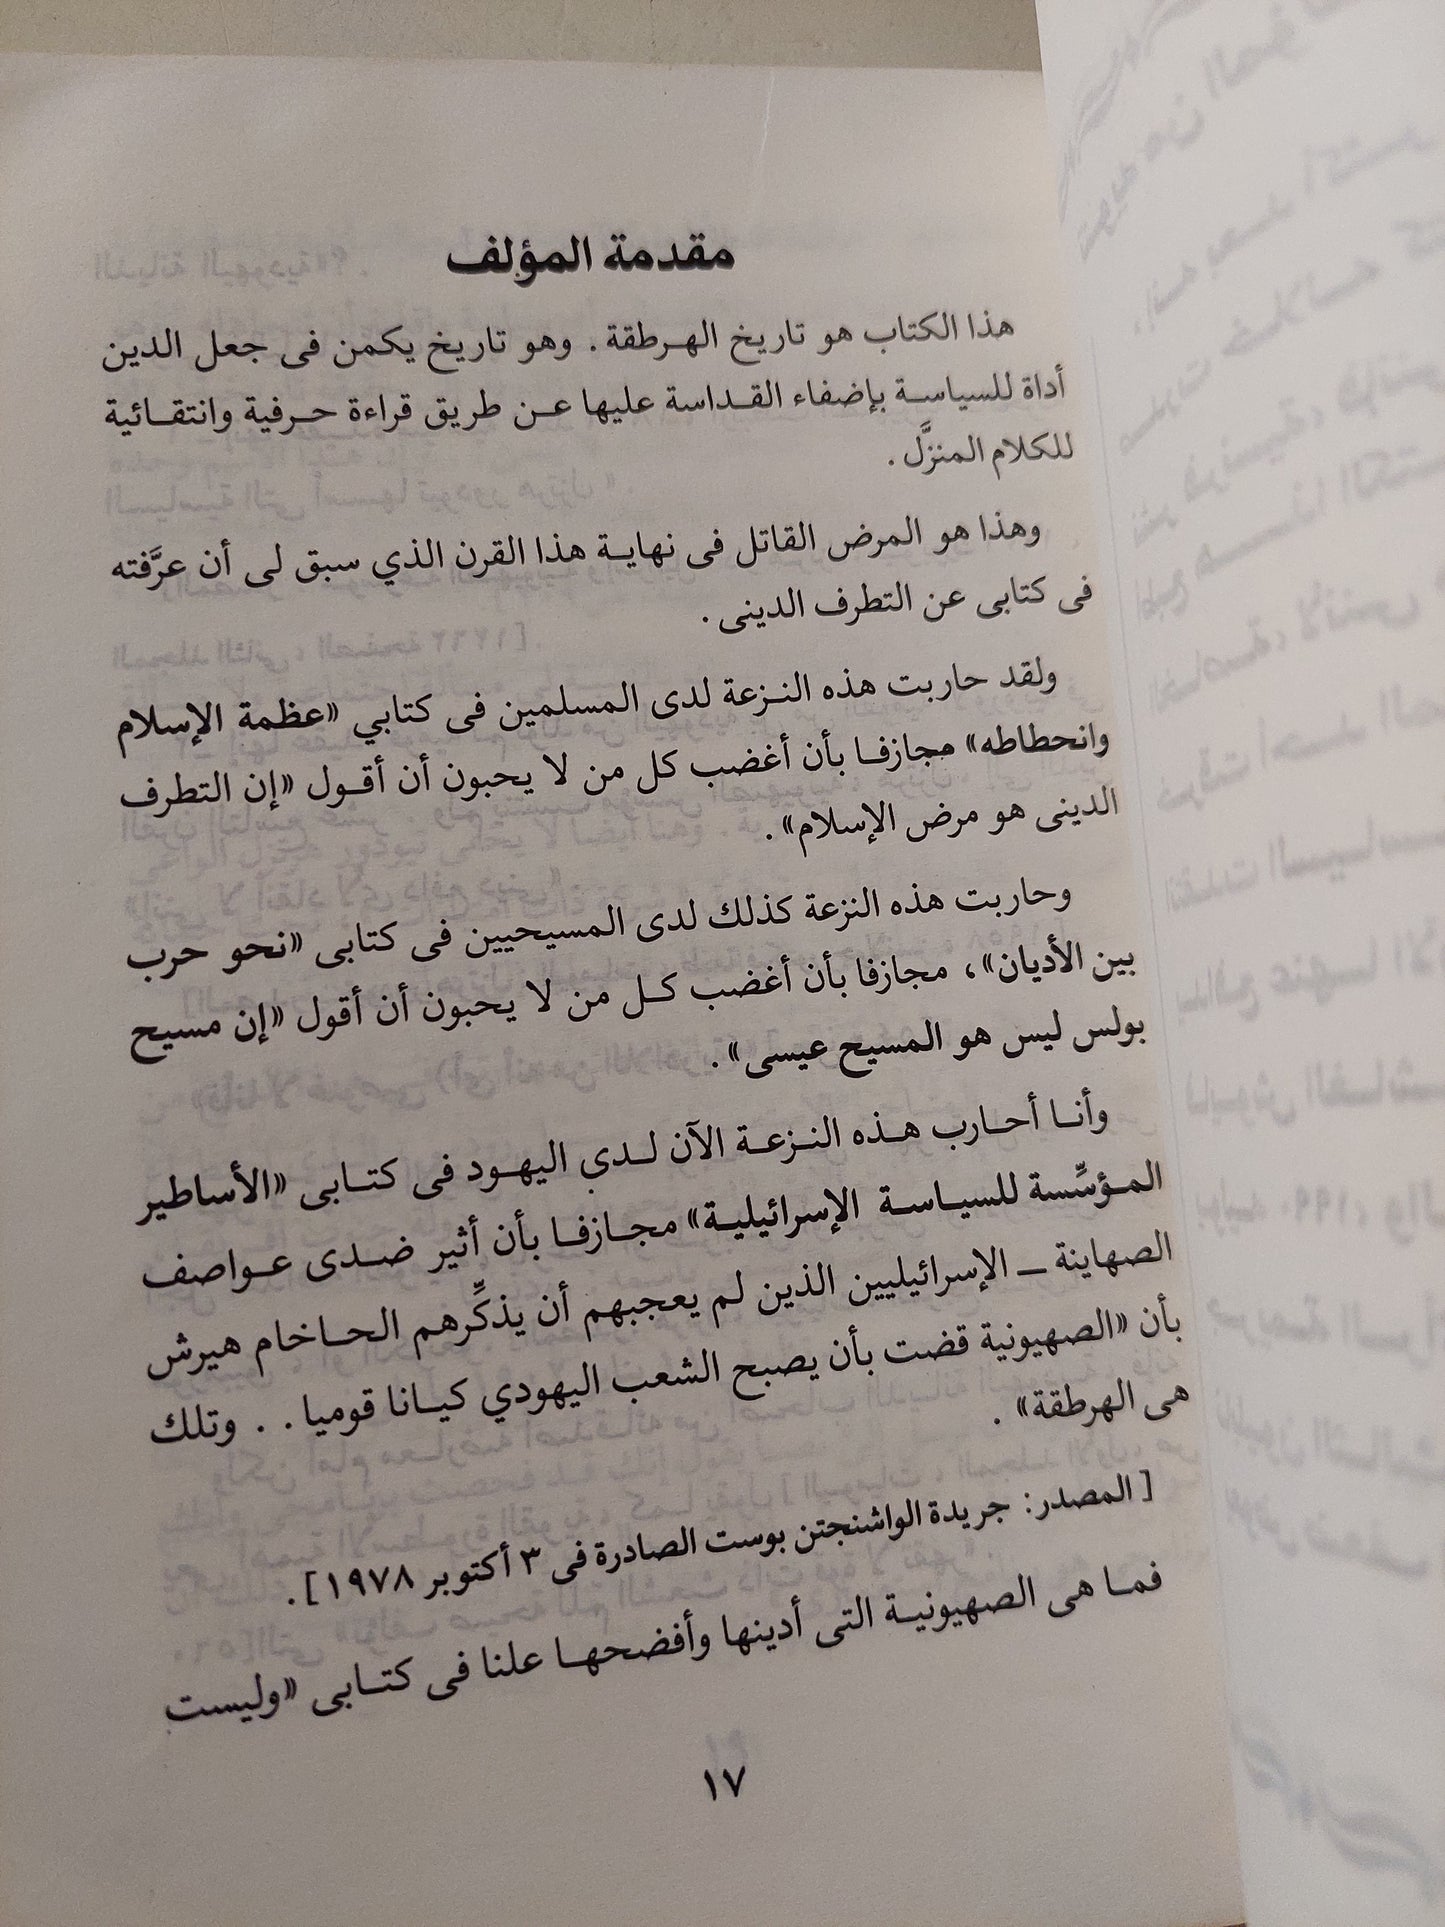 مقدمة المؤلف
هذا الكتاب هو تاريخ الهرطقة. وهو تاريخ يكمن فى جعل الدين
أداة للسياسة بإضفاء القداسة عليها عن طريق قراءة حرفية وانتقائية
للكلام المنزَّل.
وهذا هو المرض القاتل فى نهاية هذا القرن الذي سبق لى أن عرَّفته
فى كتابى عن التطرف الدينى.
ولقد حاربت هذه النزعة لدى المسلمين فى كتابي «عظمة الإسلام
وانحطاطه» مجازفا بأن أغضب كل من لا يحبون أن أقول «إن التطرف
الدينى هو مرض الإسلام».
وحاربت هذه النزعة كذلك لدى المسيحيين فى كتابى «نحو حرب
بين الأديان»، مجازفا بأن أغضب كل من لا يحبون أن أقول «إن مسيح
بولس ليس هو المسيح عيسى».
وأنا أحارب هذه النزعة الآن لدى اليهود فى كتابى «الأساطير
المؤسِّسة للسياسة الإسرائيلية» مجازفا بأن أثير ضدى عواصف
الصهاينة ــ الإسرائيليين الذين لم يعجبهم أن يذكِّرهم الحاخام هيرش
بأن «الصهيونية قضت بأن يصبح الشعب اليهودي كيانا قوميا. . وتلك
هى الهرطقة».
[المصدر: جريدة الواشنجتن بوست الصادرة فى ٣ أكتوبر ١٩٧٨].
فما هى الصهيونية التى أدينها وأفضحها علنا فى كتابى «وليست
١٧